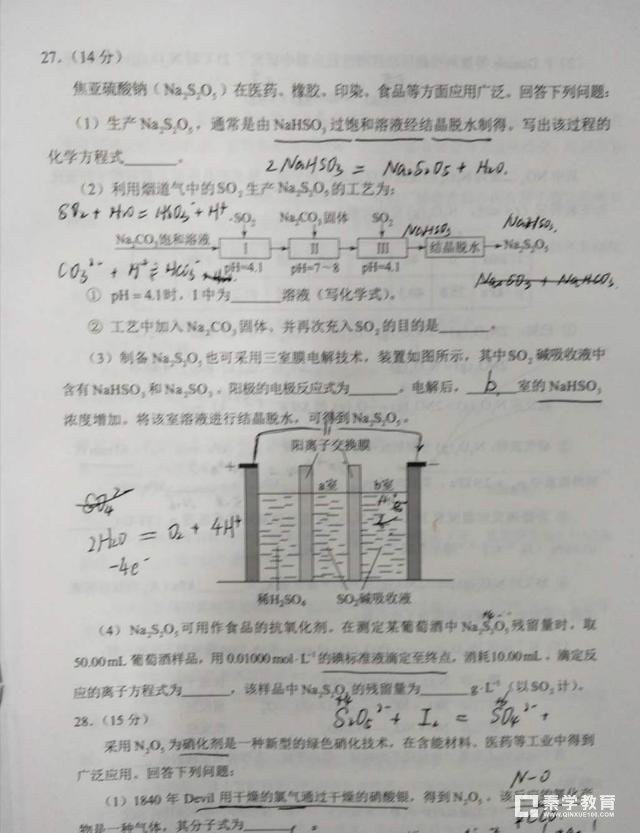 27.(14分)
焦亚硫酸钠(Na₂S₂O₅)在医药、橡胶、印染、食品等方面应用广泛。回答下列问题:
(1)生产Na₂S₂O₅,通常是由NaHSO₃过饱和溶液经结晶脱水制得。写出该过程的
化学方程式______。
2NaHSO₃ = Na₂S₂O₅ + H₂O.
(2)利用烟道气中的SO₂生产Na₂S₂O₅的工艺为:
SO₂ Na₂CO₃固体 SO₂ NaHSO₃
Na₂CO₃饱和溶液 I II III 结晶脱水 Na₂S₂O₅
pH=4.1 pH=7~8 pH=4.1
① pH=4.1时,I中为______溶液(写化学式)。
② 工艺中加入Na₂CO₃固体、并再次充入SO₂的目的是______。
(3)制备Na₂S₂O₅也可采用三室膜电解技术,装置如图所示,其中SO₂碱吸收液中
含有NaHSO₃和Na₂SO₃。阳极的电极反应式为______。电解后,b室的NaHSO₃
浓度增加。将该室溶液进行结晶脱水,可得到Na₂S₂O₅。
阳离子交换膜
+
a室 b室
2H₂O = O₂ + 4H⁺
-4e⁻
稀H₂SO₄ SO₂碱吸收液
(4)Na₂S₂O₅可用作食品的抗氧化剂。在测定某葡萄酒中Na₂S₂O₅残留量时,取
50.00mL葡萄酒样品,用0.01000mol·L⁻¹的碘标准液滴定至终点,消耗10.00mL。滴定反
应的离子方程式为______,该样品中Na₂S₂O₅的残留量为______g·L⁻¹(以SO₂计)。
S₂O₅²⁻ + I₂ = SO₄²⁻ +
28.(15分)
采用N₂O₅为硝化剂是一种新型的绿色硝化技术,在含能材料、医药等工业中得到
广泛应用。回答下列问题:
N-O
(1)1840年Devil用干燥的氯气通过干燥的硝酸银,得到N₂O₅。该反应的氧化产
物是一种气体,其分子式为
秦学教育
WWW.QINXUE100.COM